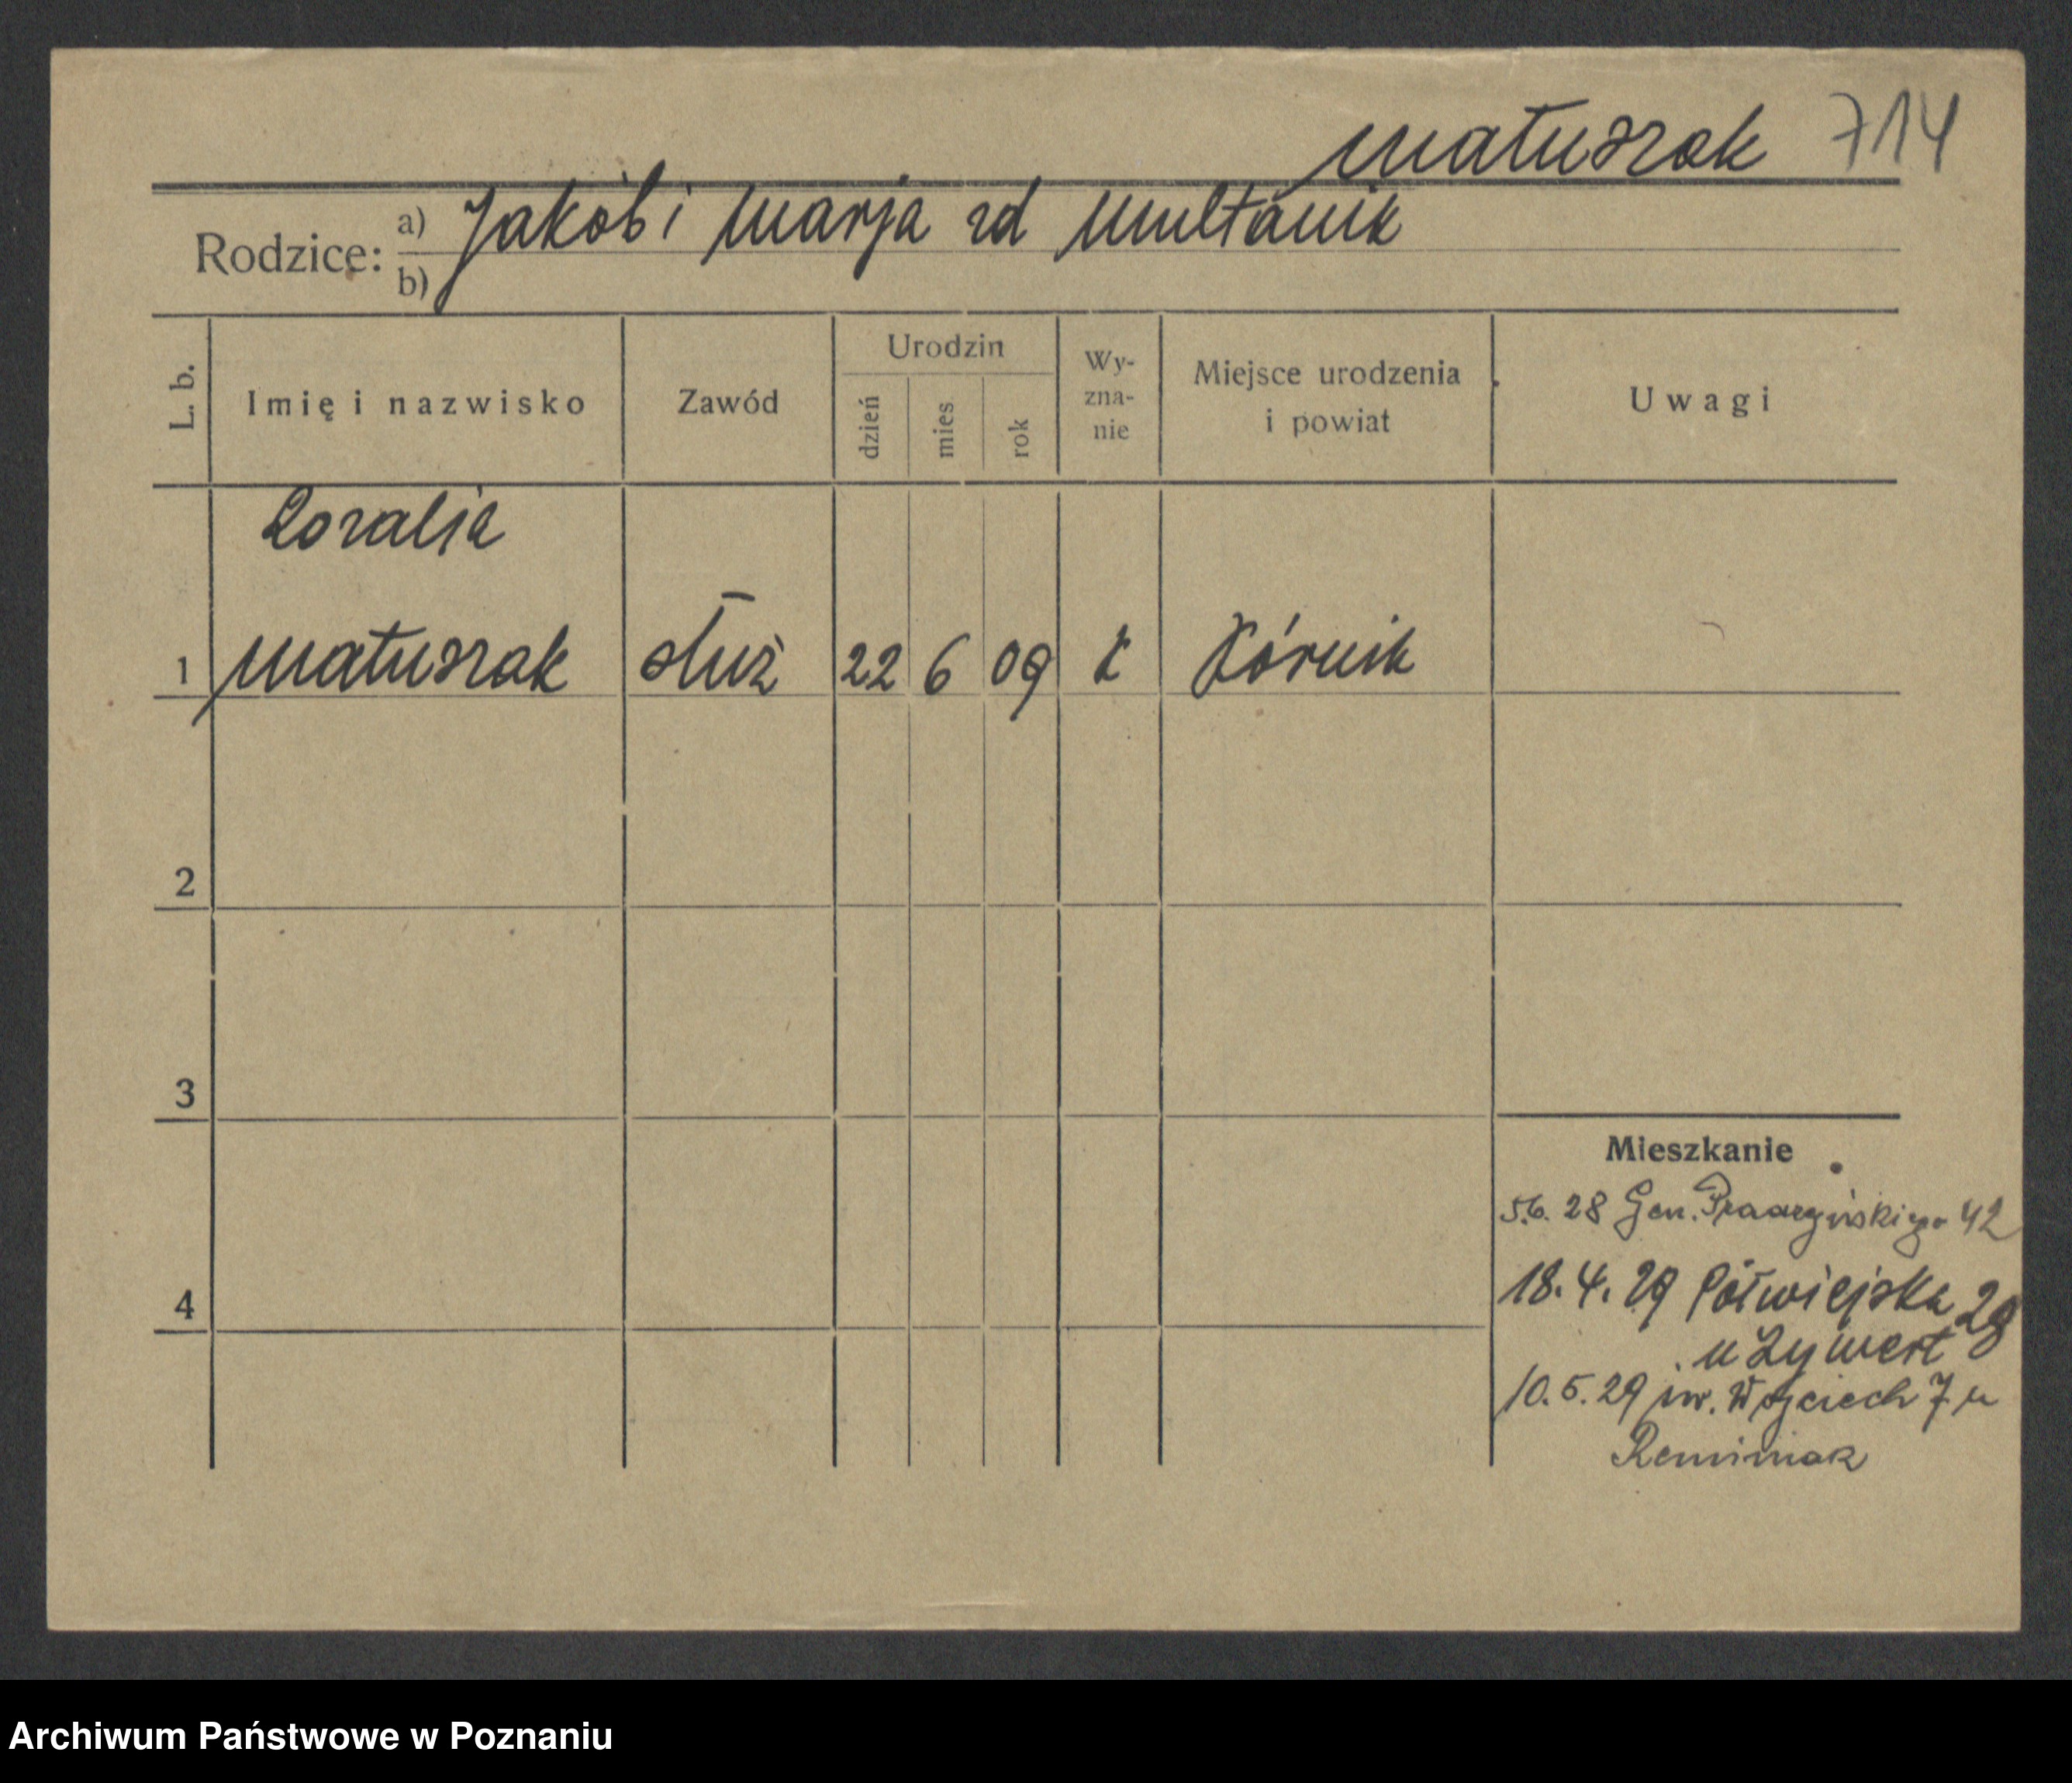 Matuszak 714
Rodzice: a) Jakób i Marja zd Multanik
b)
L. b. Imię i nazwisko Zawód Urodzin dzień mies rok Wy-zna-nie Miejsce urodzenia i powiat Uwagi
Rozalia
1 Matuszak służ 22 6 09 k Kórnik
2
3
Mieszkanie
5.6.28 Gen. Prądzyńskiego 42
4
18.4.29 Półwiejska 28
u Zywert
10.5.29 św. Wojciech 7 u